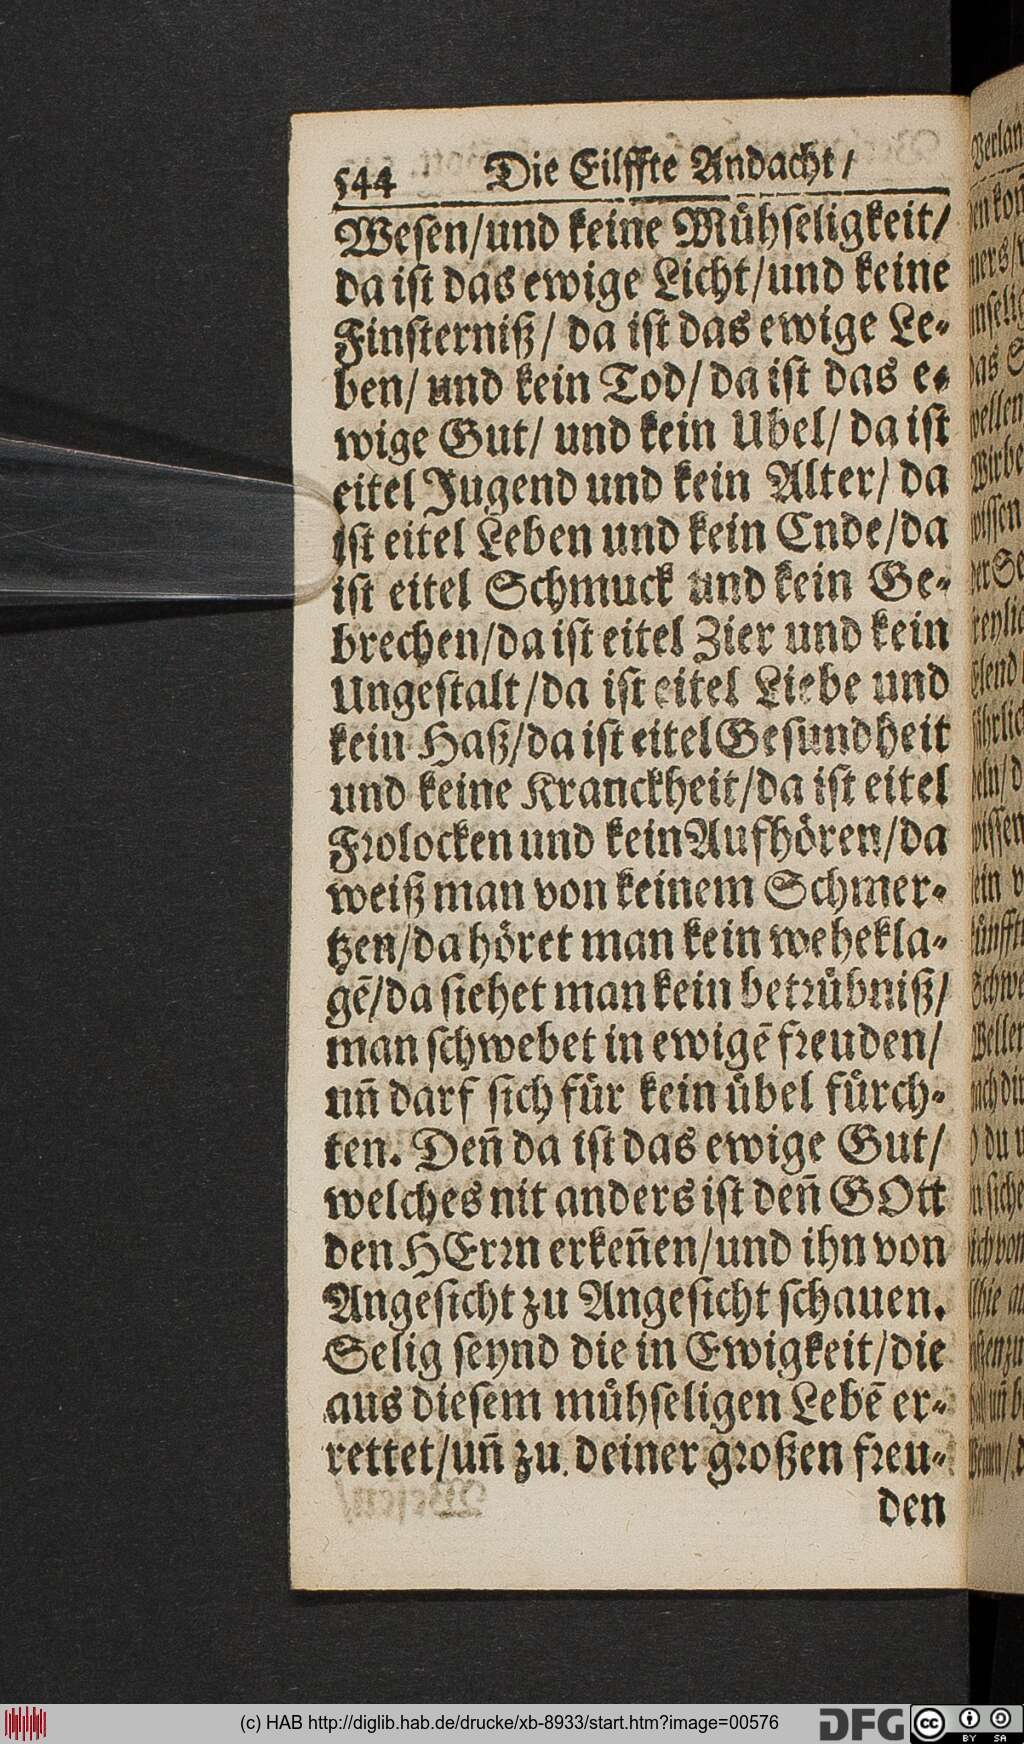 544 Die Eilffte Andacht/
Wesen/und keine Mühseligkeit/
da ist das ewige Licht/und keine
Finsterniß/ da ist das ewige Le-
ben/ und kein Tod/ da ist das e-
wige Gut/ und kein Ubel/ da ist
eitel Jugend und kein Alter/ da
ist eitel Leben und kein Ende/da
ist eitel Schmuck und kein Ge-
brechen/da ist eitel Zier und kein
Ungestalt/da ist eitel Liebe und
kein Haß/da ist eitel Gesundheit
und keine Kranckheit/da ist eitel
Frolocken und kein Aufhören/da
weiß man von keinem Schmer-
tzen/da höret man kein wehekla-
gē/da siehet man kein betrübniß/
man schwebet in ewigē freuden/
uñ darf sich für kein übel fürch-
ten. Deñ da ist das ewige Gut/
welches nit anders ist deñ GOtt
den HErrn erkeñen/und ihn von
Angesicht zu Angesicht schauen.
Selig seynd die in Ewigkeit/die
aus diesem mühseligen Lebē er-
rettet/uñ zu deiner großen freu-
den
(c) HAB http://diglib.hab.de/drucke/xb-8933/start.htm?image=00576
DFG cc BY SA